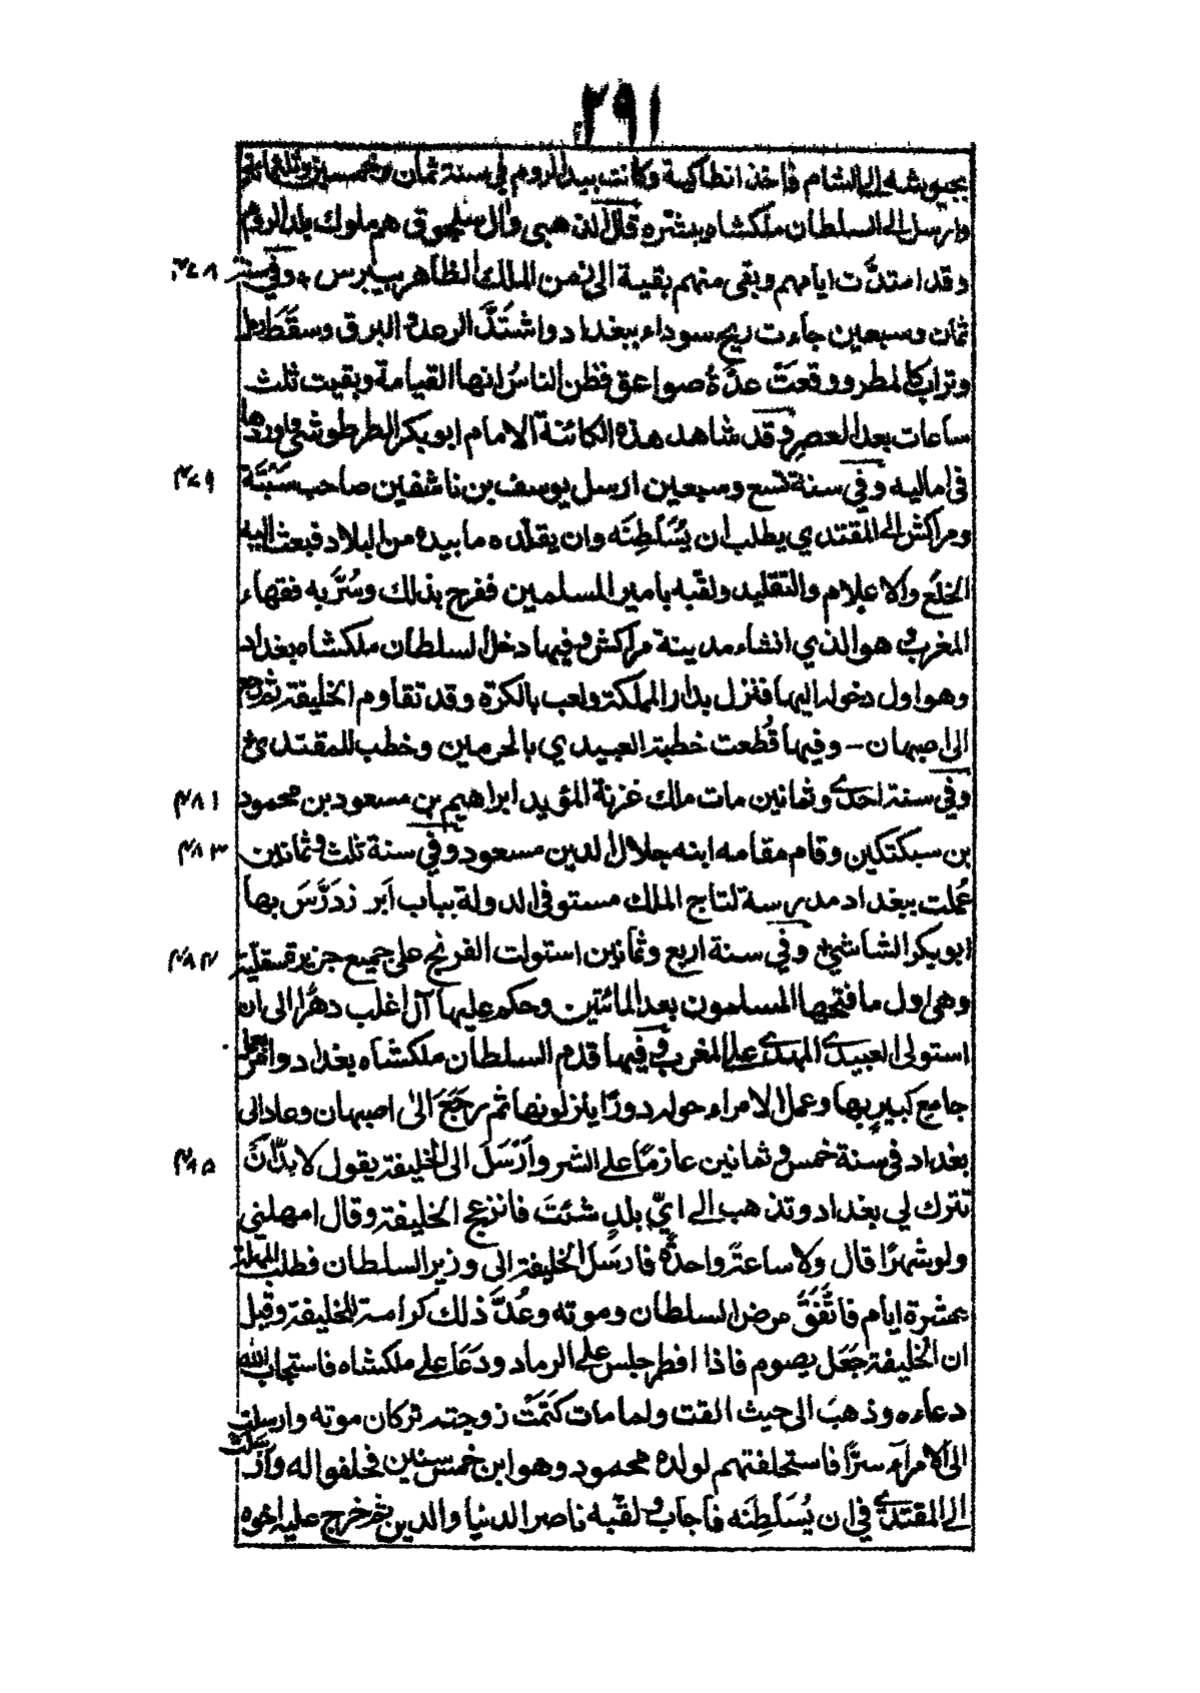 ٢٩١
بجيوشه الى الشام فاخذ انطاكية وكانت بيد الروم في سنة ثمان وخمسين وثلثمائة
وارسل الى السلطان ملكشاه يبشره قال الذهبى وآل سلجوق هم ملوك بلاد الروم
وقد امتدّت ايامهم وبقى منهم بقية الى زمن الملك الظاهر بيبرس ٭ وفي سنة ٤٧٨
ثمان وسبعين جاءت ريح سوداء ببغداد واشتَدَّ الرعد و البرق وسقَطَ رمل
وتراب كالمطر ووقعَتْ عدّةُ صواعق فظن الناسُ انها القيامة وبقيت ثلث
ساعات بعد العصر وقد شاهد هذه الكائنة الامام ابوبكر الطرطوشي واوردها
فى اماليه وفي سنة تسع وسبعين ارسل يوسف بن تاشفين صاحب سَبْتَة ٤٧٩
ومراكش الى المقتدي يطلب ان يُسَلطِنَه وان يقلّده ما بيده من البلاد فبعث اليه
الخِلَع والاعلام والتقليد ولقّبه بامير المسلمين ففرح بذلك وسُرَّ به فقهاء
المغرب و هو الذي انشاء مدينة مراكش و فيها دخل السلطان ملكشاه بغداد
وهو اول دخوله اليها فنزل بدار المملكة ولعب بالكرة وقد تقاوم الخليفة ثم رجع
الى اصبهان - وفيها قُطعت خطبة العبيدي بالحرمين وخطب للمقتدى ٭
وفي سنة احدى وثمانين مات ملك غزنة المؤيد ابراهيم بن مسعود بن محمود ٤٨١
بن سبكتكين وقام مقامه ابنه جلال الدين مسعود وفي سنة ثلث وثمانين ٤٨٣
عُملت ببغداد مدرسة لتاج الملك مستوفى الدولة بباب اَبرز دَرَّسَ بها
ابوبكر الشاشي ٭ وفي سنة اربع وثمانين استولت الفرنج على جميع جزيرة سقلية ٤٨٤
وهى اول ما فتحها المسلمون بعد المائتين وحكم عليها آل اغلب دهرًا الى ان
استولى العبيدى المهدى على المغرب و فيها قدم السلطان ملكشاه بغداد وامر بعمل
جامع كبير بها وعمل الامراء حوله دورًا ينزلونها ثم رجَعَ الى اصبهان وعاد الى
بغداد في سنة خمس و ثمانين عازمًا على الشر واَرْسَلَ الى الخليفة يقول لا بدّ اَنْ ٤٨٥
تترك لي بغداد وتذهب الى ايّ بلدٍ شئتَ فانزعج الخليفة وقال امهلني
ولو شهرًا قال ولا ساعةً واحدةً فارسَلَ الخليفة الى وزير السلطان فطلب المهلة
عشرة ايام فاتَّفَقَ مرض السلطان وموته وعُدَّ ذلك كرامة للخليفة وقيل
ان الخليفة جَعَل يصوم فاذا افطر جلس على الرماد ودَعَا على ملكشاه فاستجاب الله
دعاءه وذهَبَ الى حيث القت ولما مات كَتَمَتْ زوجته تركان موته وارسلت
الى الامرآء سرًّا فاستحلفتهم لولده محمود وهو ابن خمس سنين فحلفوا له واَرْسَلَتْ
الى المقتدى في ان يُسَلطِنَه فاجاب و لقّبه ناصر الدنيا والدين ثم خرج عليه اخوه